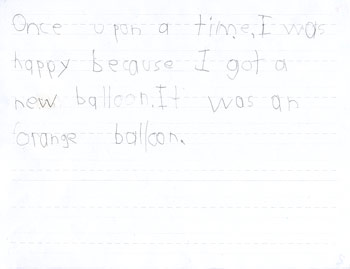 Once upon a time, I was
happy because I got a
new balloon. It was an
orange balloon.